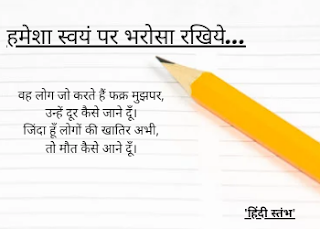 हमेशा स्वयं पर भरोसा रखिये...
वह लोग जो करते हैं फक्र मुझपर,
उन्हें दूर कैसे जाने दूँ।
जिंदा हूँ लोगों की खातिर अभी,
तो मौत कैसे आने दूँ।
'हिंदी स्तंभ'